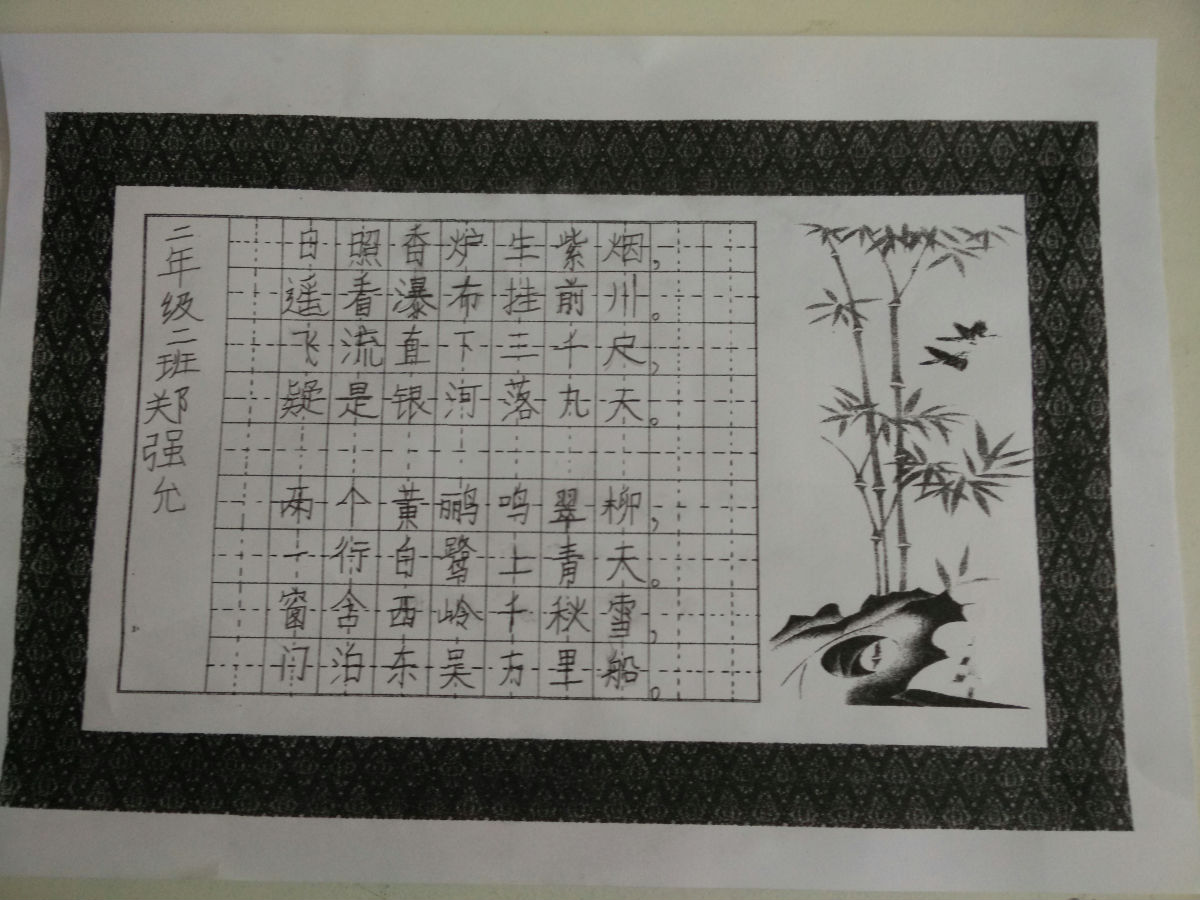 二年级二班郑强允
日照香炉生紫烟,
遥看瀑布挂前川。
飞流直下三千尺,
疑是银河落丸天。
两个黄鹂鸣翠柳,
一行白鹭上青天。
窗舍西岭千秋雪,
门泊东吴方里船。